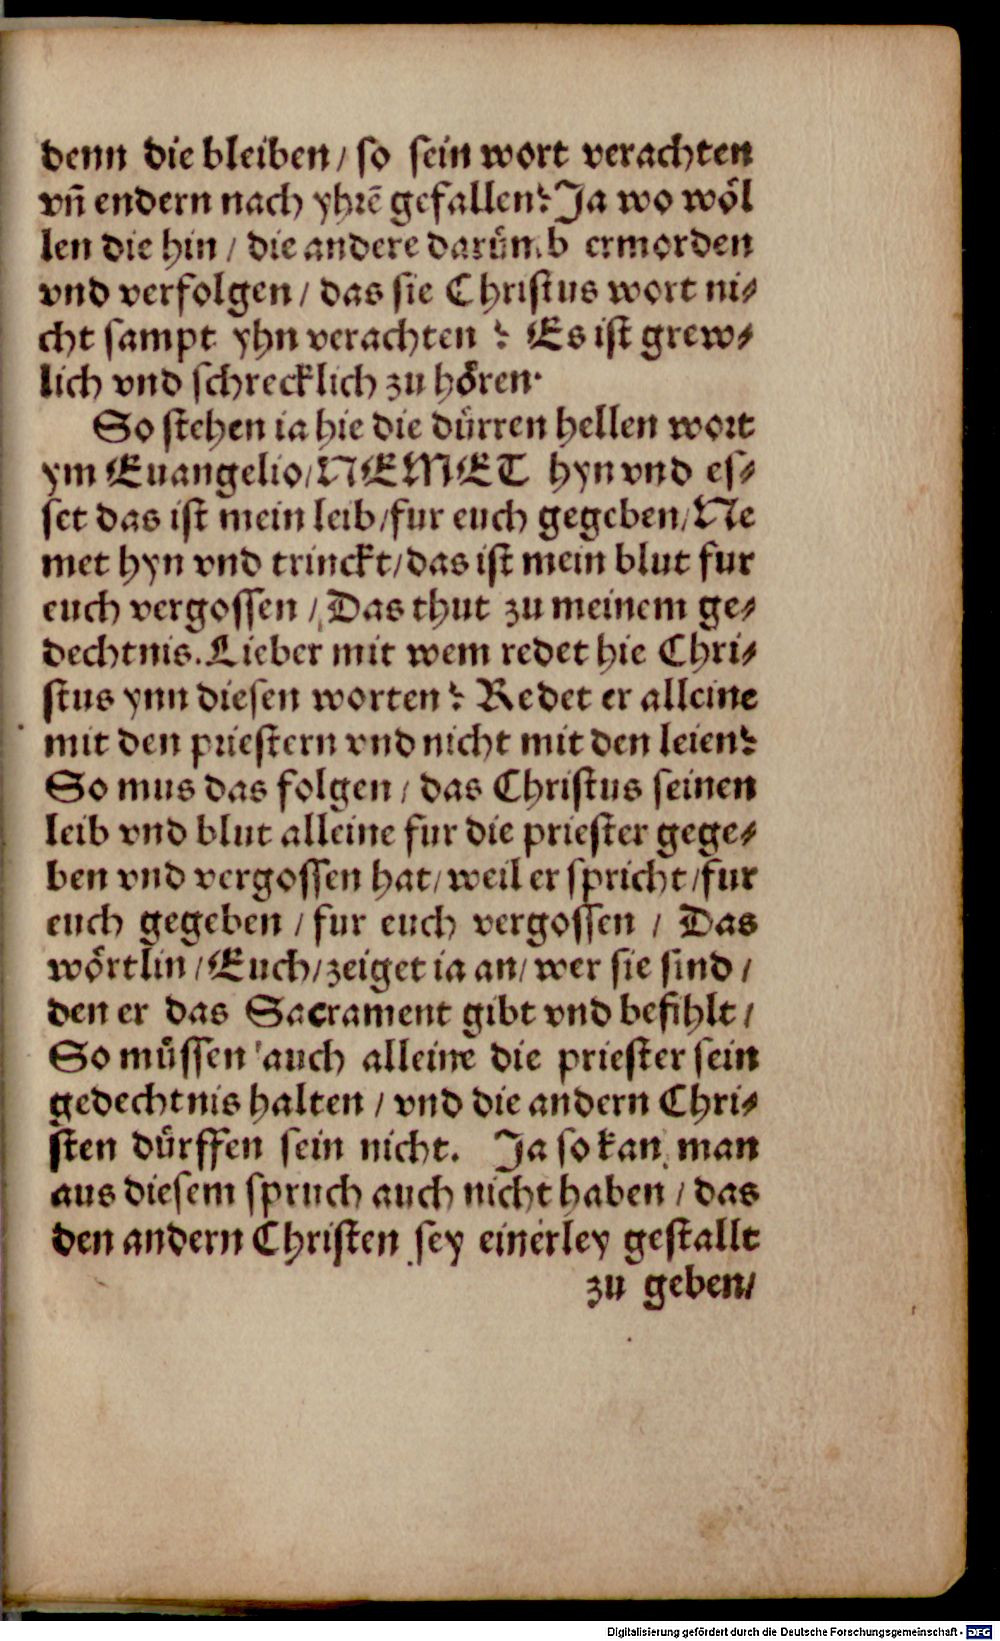 denn die bleiben / so sein wort verachten
vñ endern nach yhrẽ gefallen? Ja wo wöl
len die hin / die andere darümb ermorden
vnd verfolgen / das sie Christus wort ni⸗
cht sampt yhn verachten ? Es ist grew⸗
lich vnd schrecklich zu hören.
So stehen ia hie die dürren hellen wort
ym Euangelio / NEMET hyn vnd es⸗
set das ist mein leib / fur euch gegeben / Ne
met hyn vnd trinckt / das ist mein blut fur
euch vergossen / Das thut zu meinem ge⸗
dechtnis. Lieber mit wem redet hie Chri⸗
stus ynn diesen worten? Redet er alleine
mit den priestern vnd nicht mit den leien?
So mus das folgen / das Christus seinen
leib vnd blut alleine fur die priester gege⸗
ben vnd vergossen hat / weil er spricht / fur
euch gegeben / fur euch vergossen / Das
wörtlin / Euch / zeiget ia an / wer sie sind /
den er das Sacrament gibt vnd befihlt /
So müssen auch alleine die priester sein
gedechtnis halten / vnd die andern Chri⸗
sten dürffen sein nicht. Ja so kan man
aus diesem spruch auch nicht haben / das
den andern Christen sey einerley gestallt
zu geben /
Digitalisierung gefördert durch die Deutsche Forschungsgemeinschaft - DFG